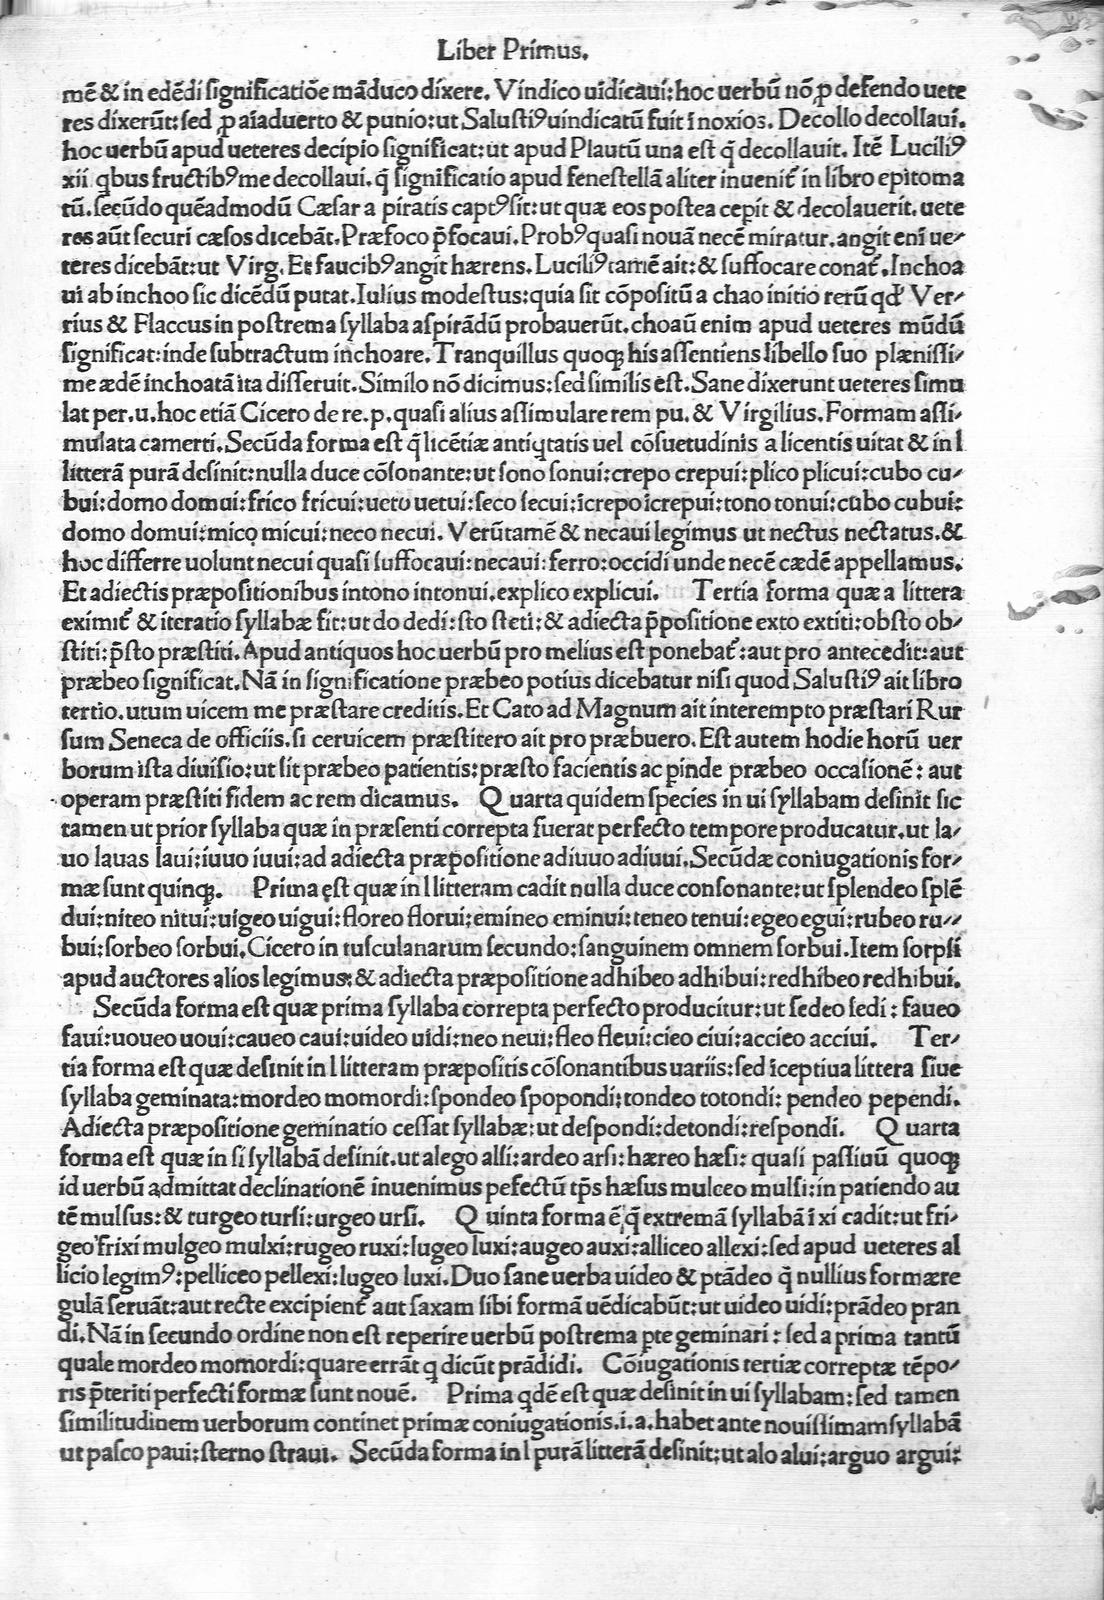 Liber Primus.
mē & in edēdi ſignificatiōe māduco dixere. Vindico uīdicaui: hoc uerbū nō ꝓ defendo uete
res dixerūt: ſed ꝓ aīaduerto & punio: ut Saluſtiꝰ uindicatū fuit ī noxios. Decollo decollaui.
hoc uerbū apud ueteres decipio ſignificat: ut apud Plautū una eſt q̄ decollauit. Itē Luciliꝰ
xii. qbus fructibꝰ me decollaui. q̄ ſignificatio apud feneſtellā aliter inuenit᷑ in libro epitoma
tū. ſecūdo quēadmodū Cæſar a piratis captꝰ ſit: ut quæ eos poſtea cepit & decolauerit. uete
res aūt ſecuri cæſos dicebāt. Præfoco p̄focaui. Probꝰ quaſi nouā necē miratur. angit eni ue⸗
teres dicebāt: ut Virg. Et faucibꝰ angit hærens. Luciliꝰ tamē ait: & ſuffocare conat᷑. Inchoa
ui ab inchoo ſic dicēdū putat. Iulius modeſtus: quia ſit cōpoſitū a chao initio rerū qđ Ver⸗
rius & Flaccus in poſtrema ſyllaba aſpirādū probauerūt. choaū enim apud ueteres mūdū
ſignificat: inde ſubtractum inchoare. Tranquillus quoqꝫ his aſſentiens libello ſuo plæniſſi⸗
me ædē inchoatā ita diſſeruit. Similo nō dicimus: ſed ſimilis eſt. Sane dixerunt ueteres ſimu
lat per. u. hoc etiā Cicero de re. p. quaſi alius aſſimulare rem pu. & Virgilius. Formam aſſi⸗
mulata camerti. Secūda forma eſt q̄ licētiæ antiqtatis uel cōſuetudinis a licentis uitat & in l
litterā purā deſinit: nulla duce cōſonante: ut ſono ſonui: crepo crepui: plico plicui: cubo cu⸗
bui: domo domui: frico fricui: ueto uetui: ſeco ſecui: īcrepo īcrepui: tono tonui: cubo cubui:
domo domui: mico micui: neco necui. Verūtamē & necaui legimus ut nectus nectatus. &
hoc differre uolunt necui quaſi ſuffocaui: necaui: ferro: occidi unde necē cædē appellamus.
Et adiectis præpoſitionibus intono intonui. explico explicui. Tertia forma quæ a littera
eximit᷑ & iteratio ſyllabæ fit: ut do dedi: ſto ſteti: & adiecta p̄poſitione exto extiti: obſto ob⸗
ſtiti: p̄ſto præſtiti. Apud antiquos hoc uerbū pro melius eſt ponebat᷑: aut pro antecedit: aut
præbeo ſignificat. Nā in ſignificatione præbeo potius dicebatur niſi quod Saluſtiꝰ ait libro
tertio. utum uicem me præſtare creditis. Et Cato ad Magnum ait interempto præſtari Rur
ſum Seneca de officiis. ſi ceruicem præſtitero ait pro præbuero. Eſt autem hodie horū uer
borum iſta diuiſio: ut ſit præbeo patientis: præſto facientis ac ꝓinde præbeo occaſionē: aut
operam præſtiti fidem ac rem dicamus. Quarta quidem ſpecies in ui ſyllabam deſinit ſic
tamen ut prior ſyllaba quæ in præſenti correpta fuerat perfecto tempore producatur. ut la⸗
uo lauas laui: iuuo iuui: ad adiecta præpoſitione adiuuo adiuui. Secūdæ coniugationis for⸗
mæ ſunt quinqꝫ. Prima eſt quæ in l litteram cadit nulla duce conſonante: ut ſplendeo ſplē
dui: niteo nitui: uigeo uigui: floreo florui: emineo eminui: teneo tenui: egeo egui: rubeo ru⸗
bui: ſorbeo ſorbui. Cicero in tuſculanarum ſecundo: ſanguinem omnem ſorbui. Item ſorpſi
apud auctores alios legimus: & adiecta præpoſitione adhibeo adhibui: redhibeo redhibui.
Secūda forma eſt quæ prima ſyllaba correpta perfecto producitur: ut ſedeo ſedi: faueo
faui: uoueo uoui: caueo caui: uideo uidi: neo neui: fleo fleui: cieo ciui: accieo acciui. Ter⸗
tia forma eſt quæ deſinit in l litteram præpoſitis cōſonantibus uariis: ſed īceptiua littera ſiue
ſyllaba geminata: mordeo momordi: ſpondeo ſpopondi: tondeo totondi: pendeo pependi.
Adiecta præpoſitione geminatio ceſſat ſyllabæ: ut deſpondi: detondi: reſpondi. Quarta
forma eſt quæ in ſi ſyllabā deſinit. ut alego alſi: ardeo arſi: hæreo hæſi: quaſi paſſiuū quoqꝫ
id uerbū admittat declinationē inuenimus pefectū tp̄s hæſus mulceo mulſi: in patiendo au
tē mulſus: & turgeo turſi: urgeo urſi. Quinta forma ē, q̄ extremā ſyllabā ī xi cadit: ut fri⸗
geo frixi mulgeo mulxi: rugeo ruxi: lugeo luxi: augeo auxi: alliceo allexi: ſed apud ueteres al
licio legimꝰ: pelliceo pellexi: lugeo luxi. Duo ſane uerba uideo & ptādeo q̄ nullius formære
gulā ſeruāt: aut recte excipient᷑ aut ſaxam ſibi formā uēdicabūt: ut uideo uidi: prādeo pran
di. Nā in ſecundo ordine non eſt reperire uerbū poſtrema ꝑte geminari: ſed a prima tantū
quale mordeo momordi: quare errāt q dicūt prādidi. Cōiugationis tertiæ correptæ tēpo⸗
ris p̄teriti perfecti formæ ſunt nouē. Prima qdē eſt quæ deſinit in ui ſyllabam: ſed tamen
ſimilitudinem uerborum continet primæ coniugationis. i. a. habet ante nouiſſimam ſyllabā
ut paſco paui: ſterno ſtraui. Secūda forma in l purā litterā deſinit: ut alo alui: arguo argui: